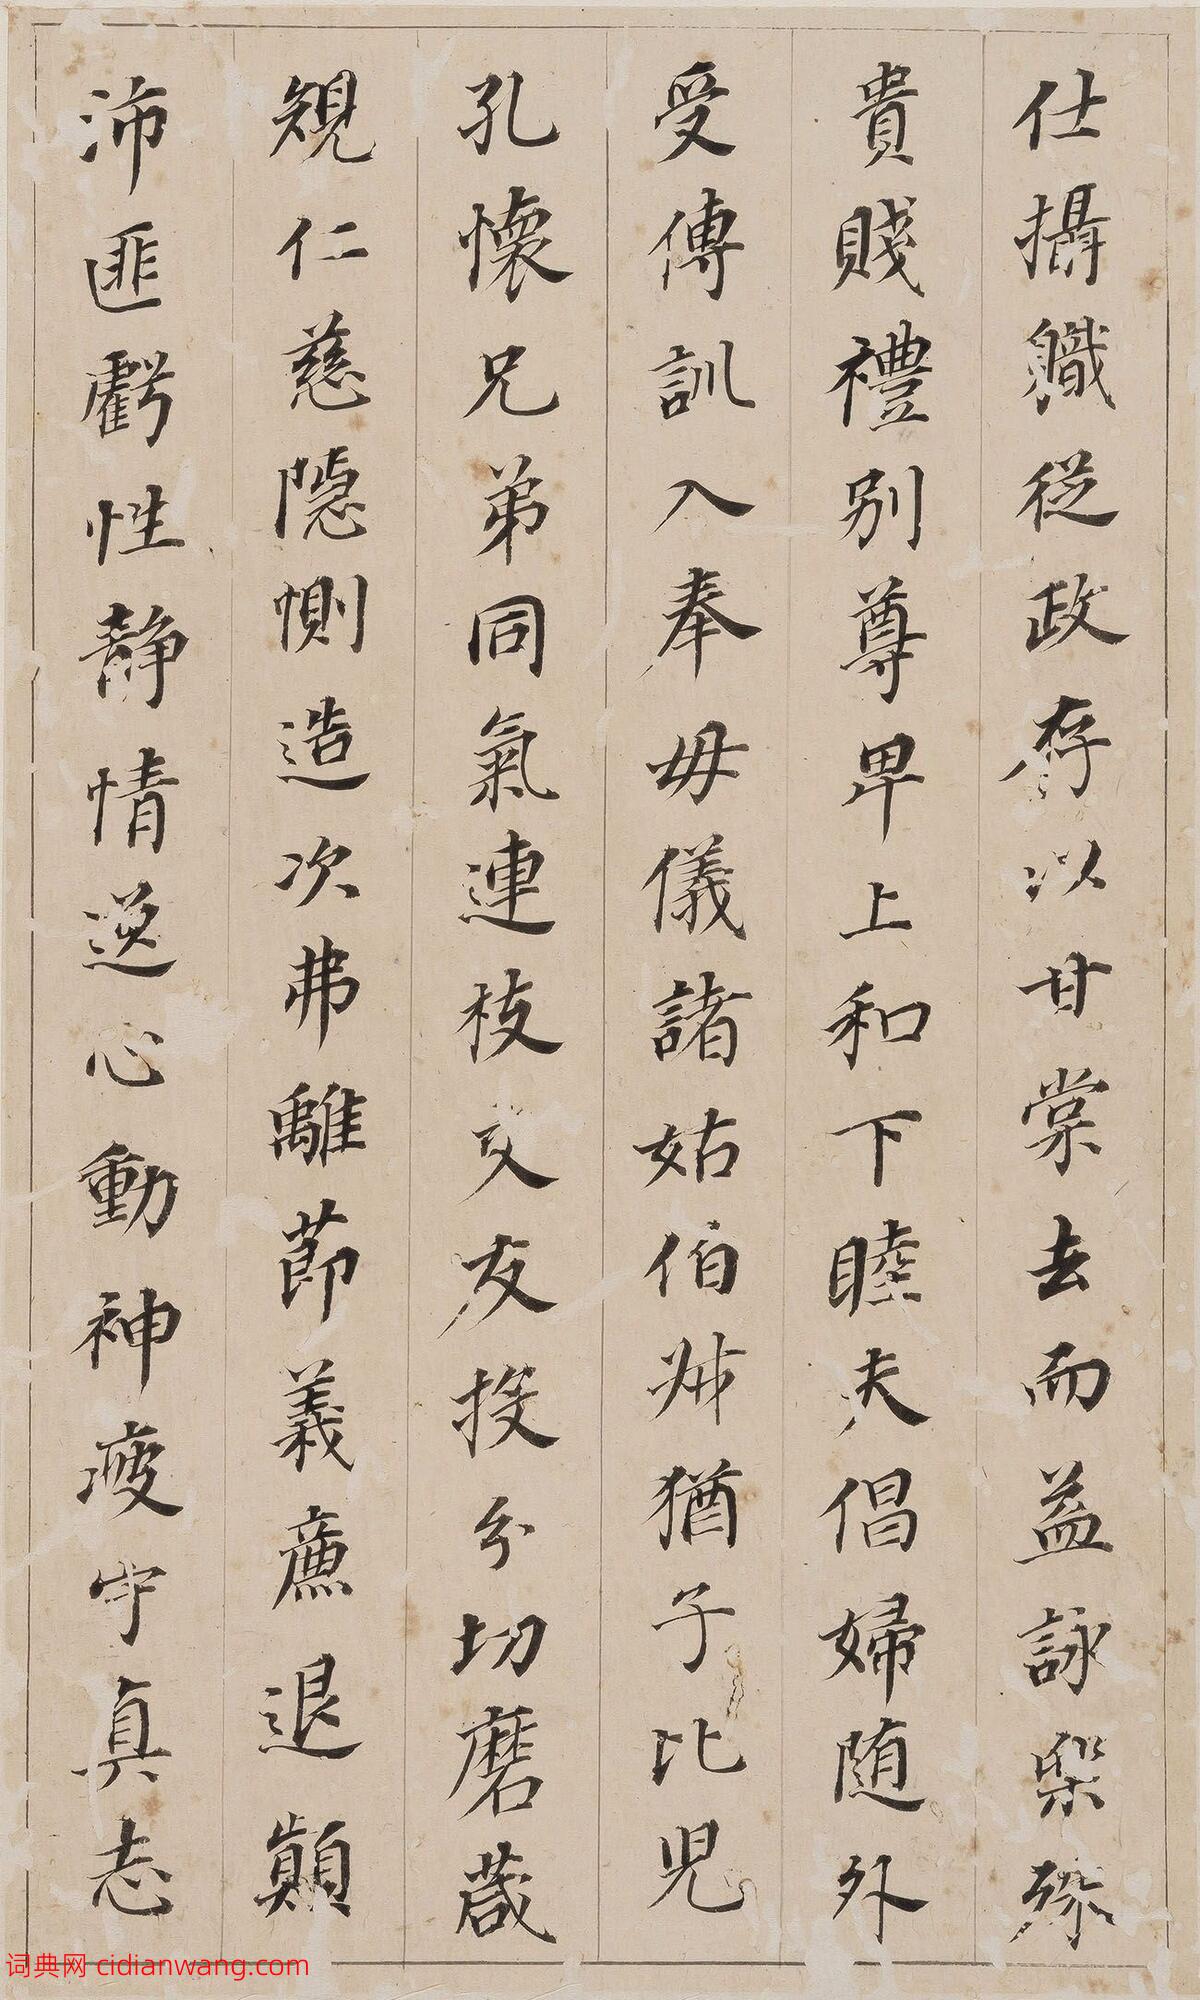 仕攝職從政存以甘棠去而益詠樂殊
貴賤禮別尊卑上和下睦夫倡婦隨外
受傅訓入奉毋儀諸姑伯叔猶子比兒
孔懷兄弟同氣連枝交友投分切磨葴
規仁慈隱惻造次弗離節義廉退顛
沛匪虧性靜情逸心動神疲守真志
词典网 cidianwang.com